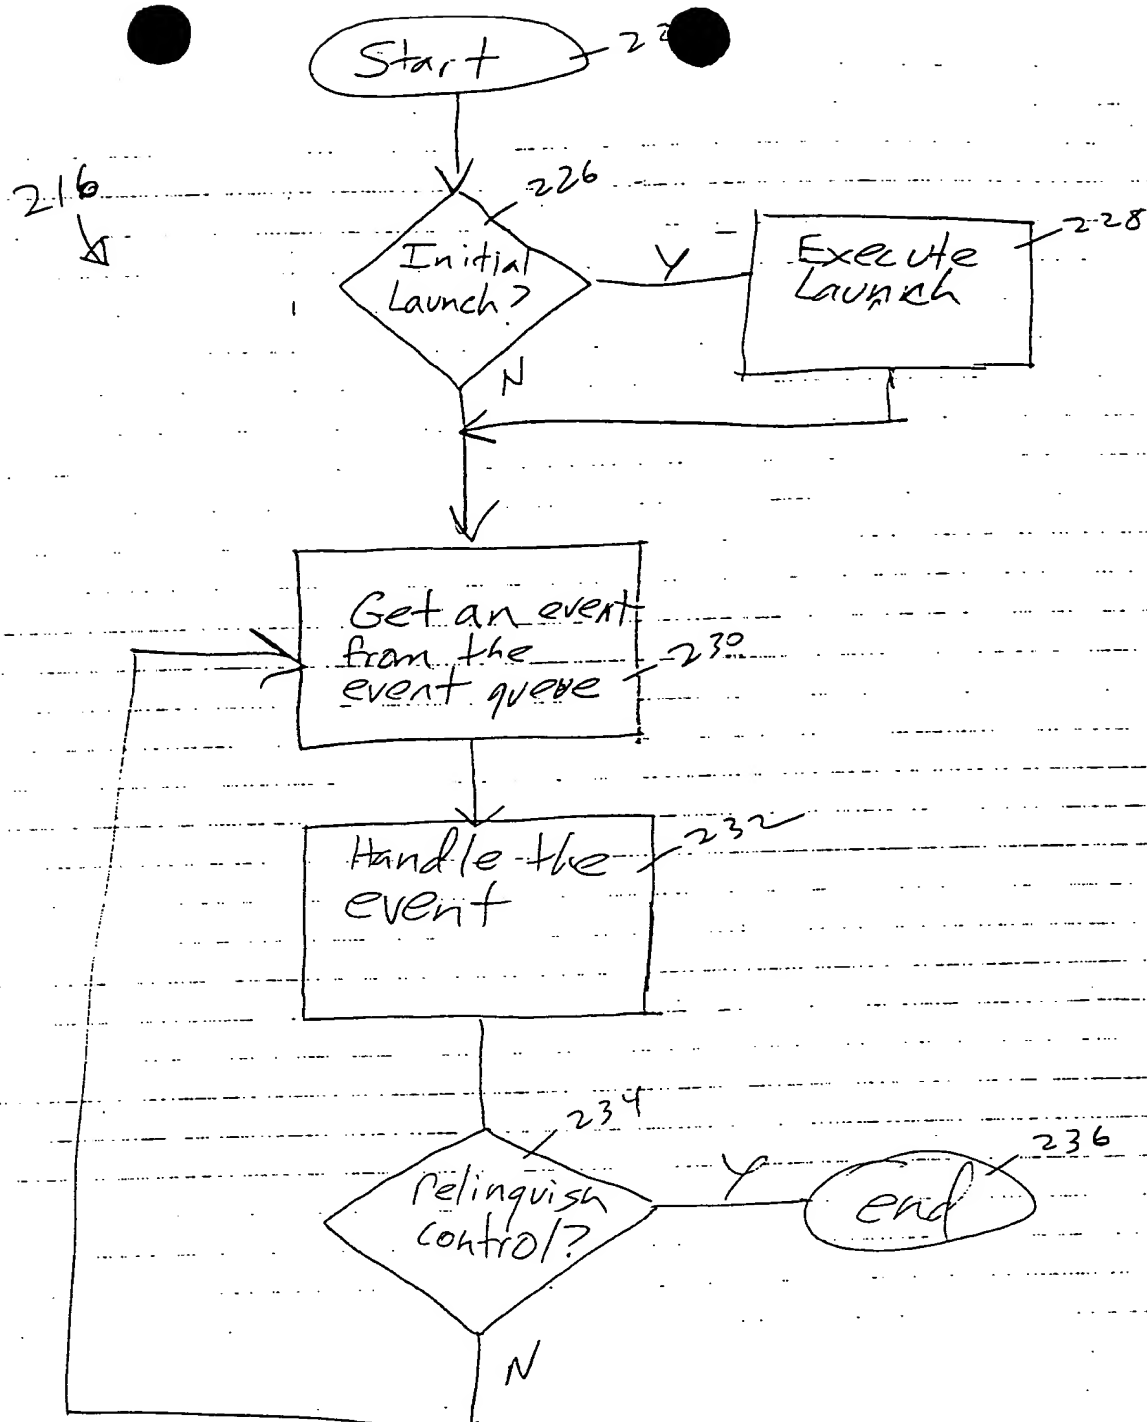 Start
216
226
Initial
Launch?
Y
Execute
Launch
228
N
Get an event
from the
event queue
230
Handle the
event
232
234
Relinquish
control?
Y
end
236
N